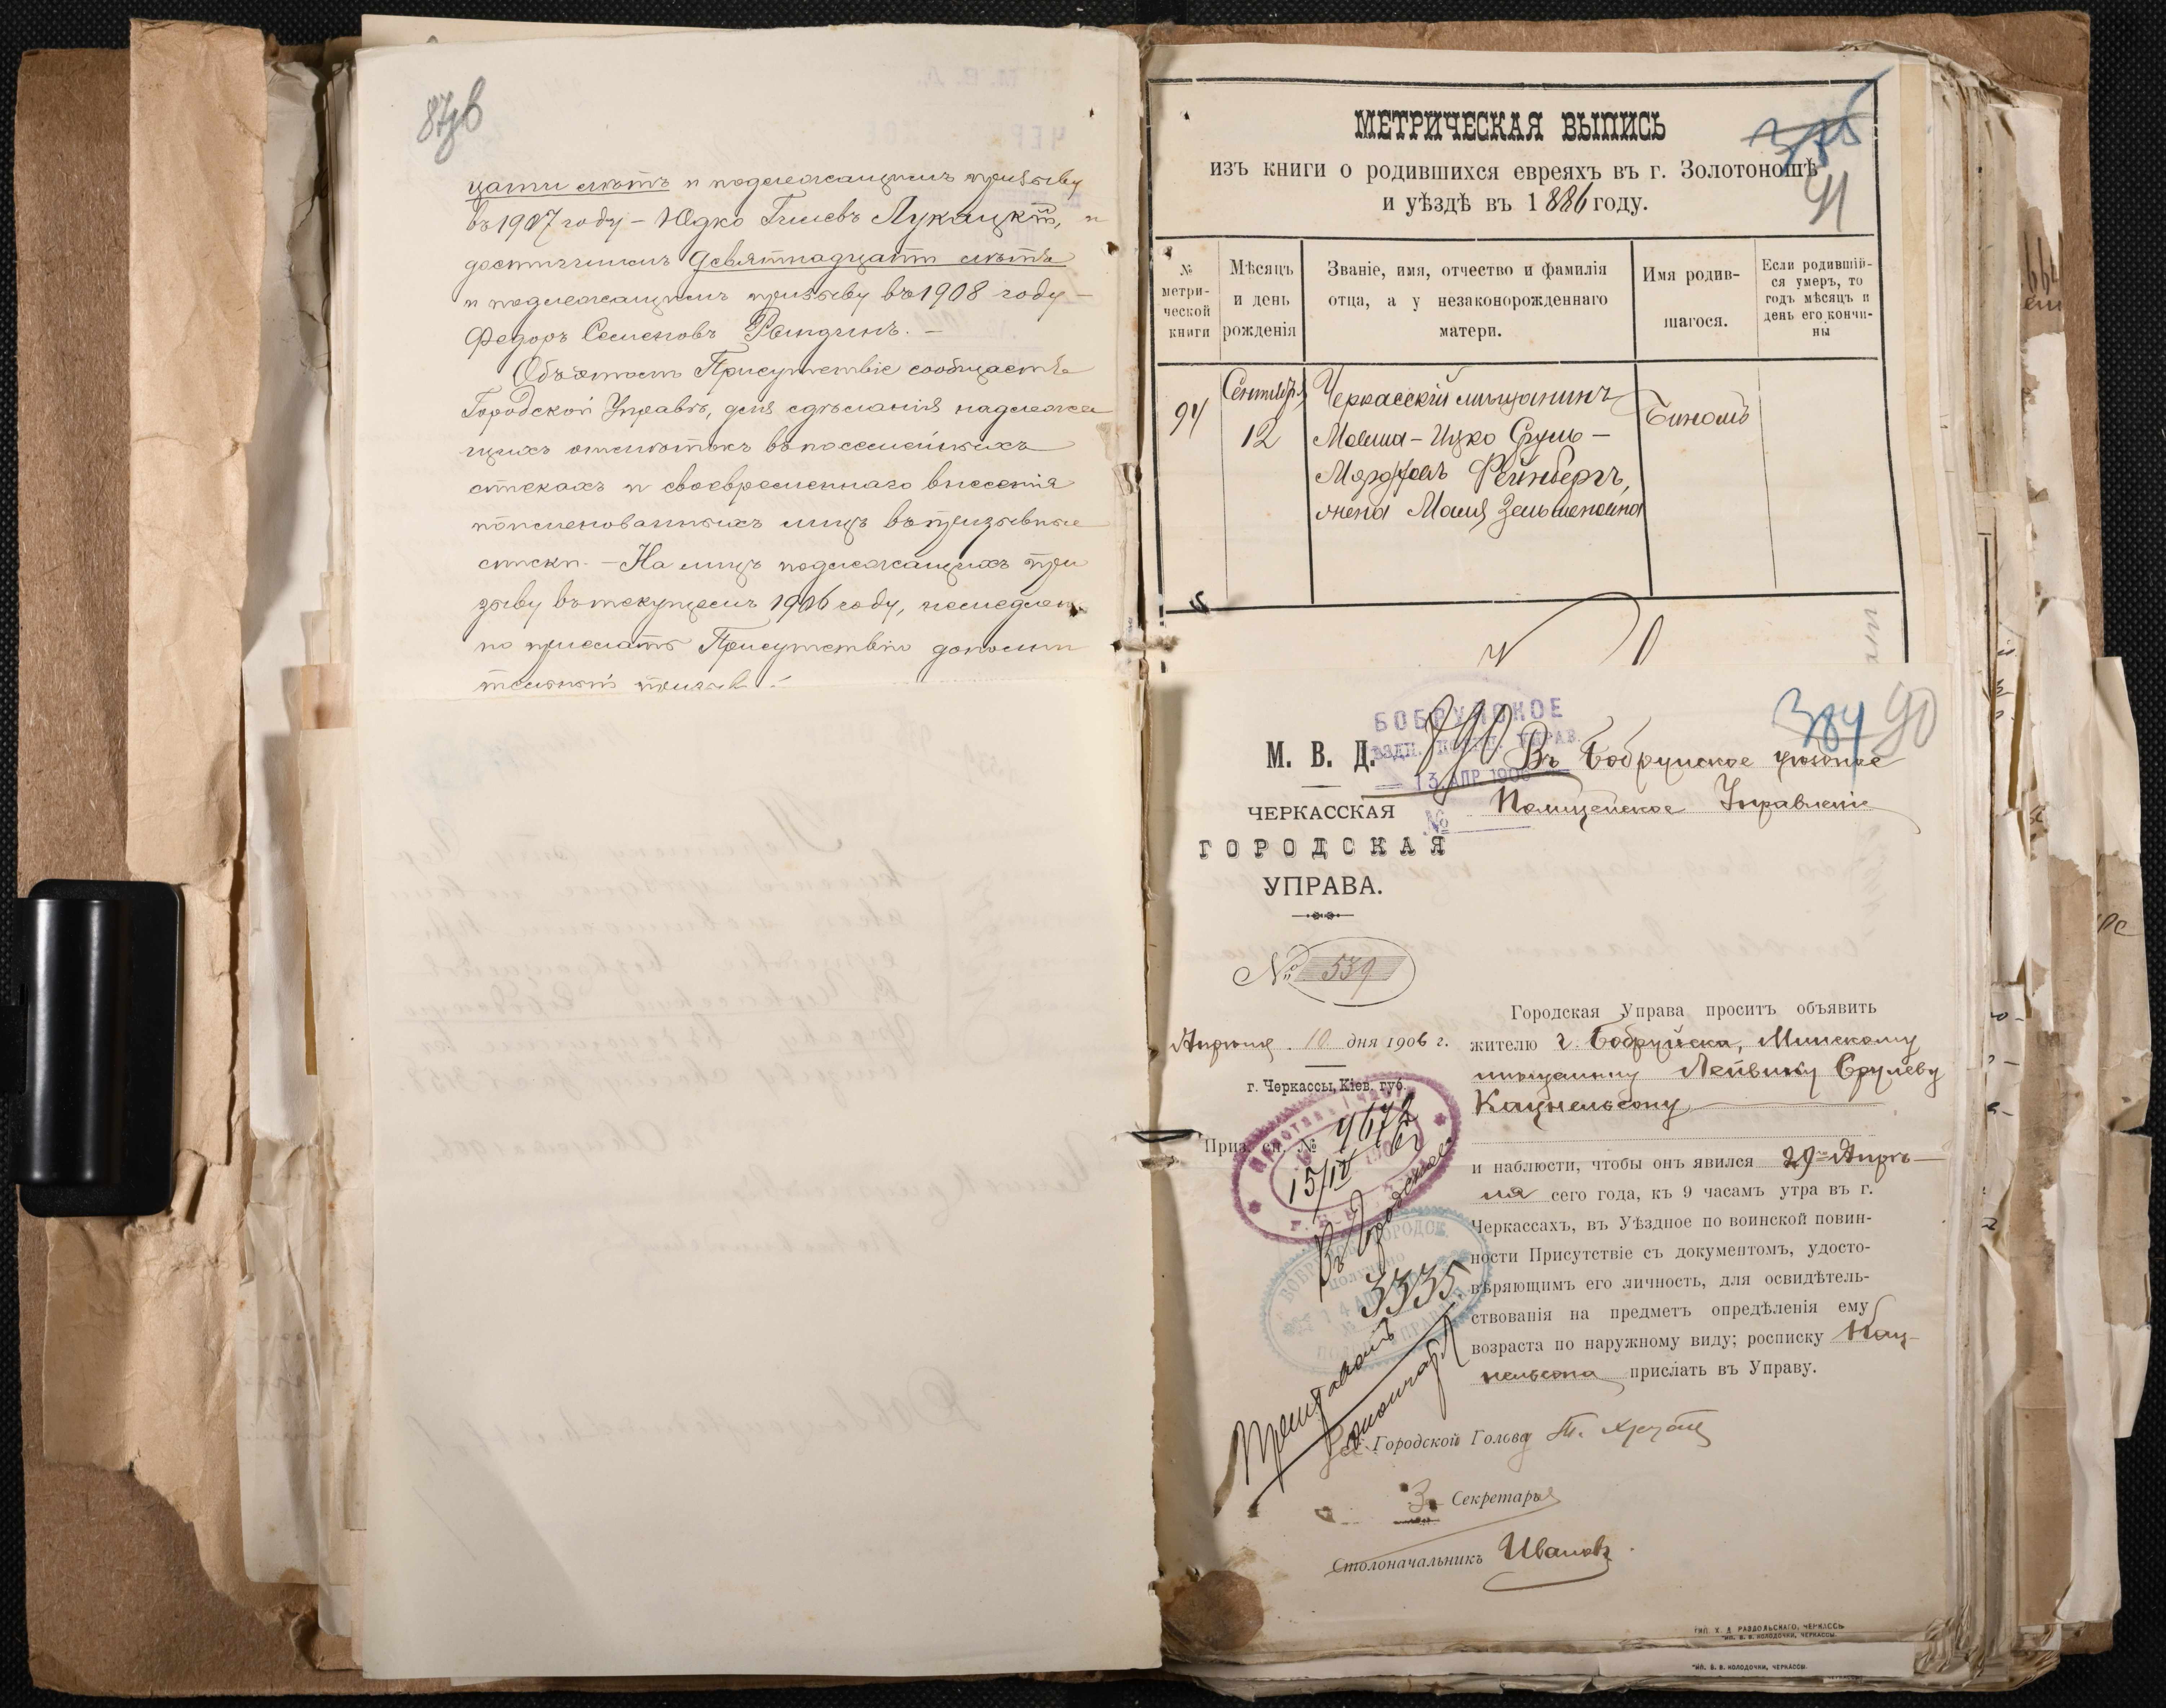 87об
цати лѣтъ и подлежащимъ призыву
въ 1907 году – Юдко Гилевъ Лукацкій, и
достигшимъ девятнадцати лѣтъ
и подлежащимъ призыву въ 1908 году –
Федоръ Семеновъ Рындинъ. –
Объ этомъ Присутствіе сообщаетъ
Городской Управѣ, для сдѣланія надлежа
щихъ отмѣтокъ въ посемейныхъ
спискахъ и своевременнаго внесенія
поименованныхъ лицъ въ призывные
списки. – На лицъ подлежащихъ при
зыву въ текущемъ 1906 году, немедлен
но прислать Присутствію дополни
тельный
МЕТРИЧЕСКАЯ ВЫПИСЬ
385
изъ книги о родившихся евреяхъ въ г. Золотоношѣ
91
и уѣздѣ въ 1886 году.
№ метри-ческой книги
Мѣсяцъ и день рожденія
Званіе, имя, отчество и фамилія отца, а у незаконорожденнаго матери.
Имя родив-шагося.
Если родившій-ся умеръ, то годъ мѣсяцъ и день его кончи-ны
94
Сентября
12
Черкасскій мѣщанинъ
Мовша-Ицко Сруль-
Мордковъ Фейнбергъ,
жена Малия
Биномъ
384 90
БОБРУЙСКОЕ
УѢЗДН. ПОЛИЦ. УПРАВ.
13 АПР 1906
№
890
М. В. Д.
ЧЕРКАССКАЯ
ГОРОДСКАЯ
УПРАВА.
Въ Бобруйское уѣздное
Полицейское Управленіе
№ 539
Апрѣля 10 дня 1906 г.
г. Черкассы, Кіев. губ.
Приз. сп. №
4672
15/IV
Въ Городское
3335
Городская Управа проситъ объявить
жителю г. Бобруйска, Минскому
мѣщанину Лейвику Срулеву
Кацнельсону
и наблюсти, чтобы онъ явился 29 Апрѣ-
ля сего года, къ 9 часамъ утра въ г.
Черкассахъ, въ Уѣздное по воинской повин-
ности Присутствіе съ документомъ, удосто-
вѣряющимъ его личность, для освидѣтель-
ствованія на предметъ опредѣленія ему
возраста по наружному виду; росписку Кац-
нельсона прислать въ Управу.
Городской Голова
За Секретаря
Столоначальникъ Ивановъ
ТИП. Х. Д РАЗДОЛЬСКАГО, ЧЕРКАССЫ
ТИП. В. В. КОЛОДОЧКИ, ЧЕРКАССЫ.
ТИП. В. В. КОЛОДОЧКИ, ЧЕРКАССЫ.